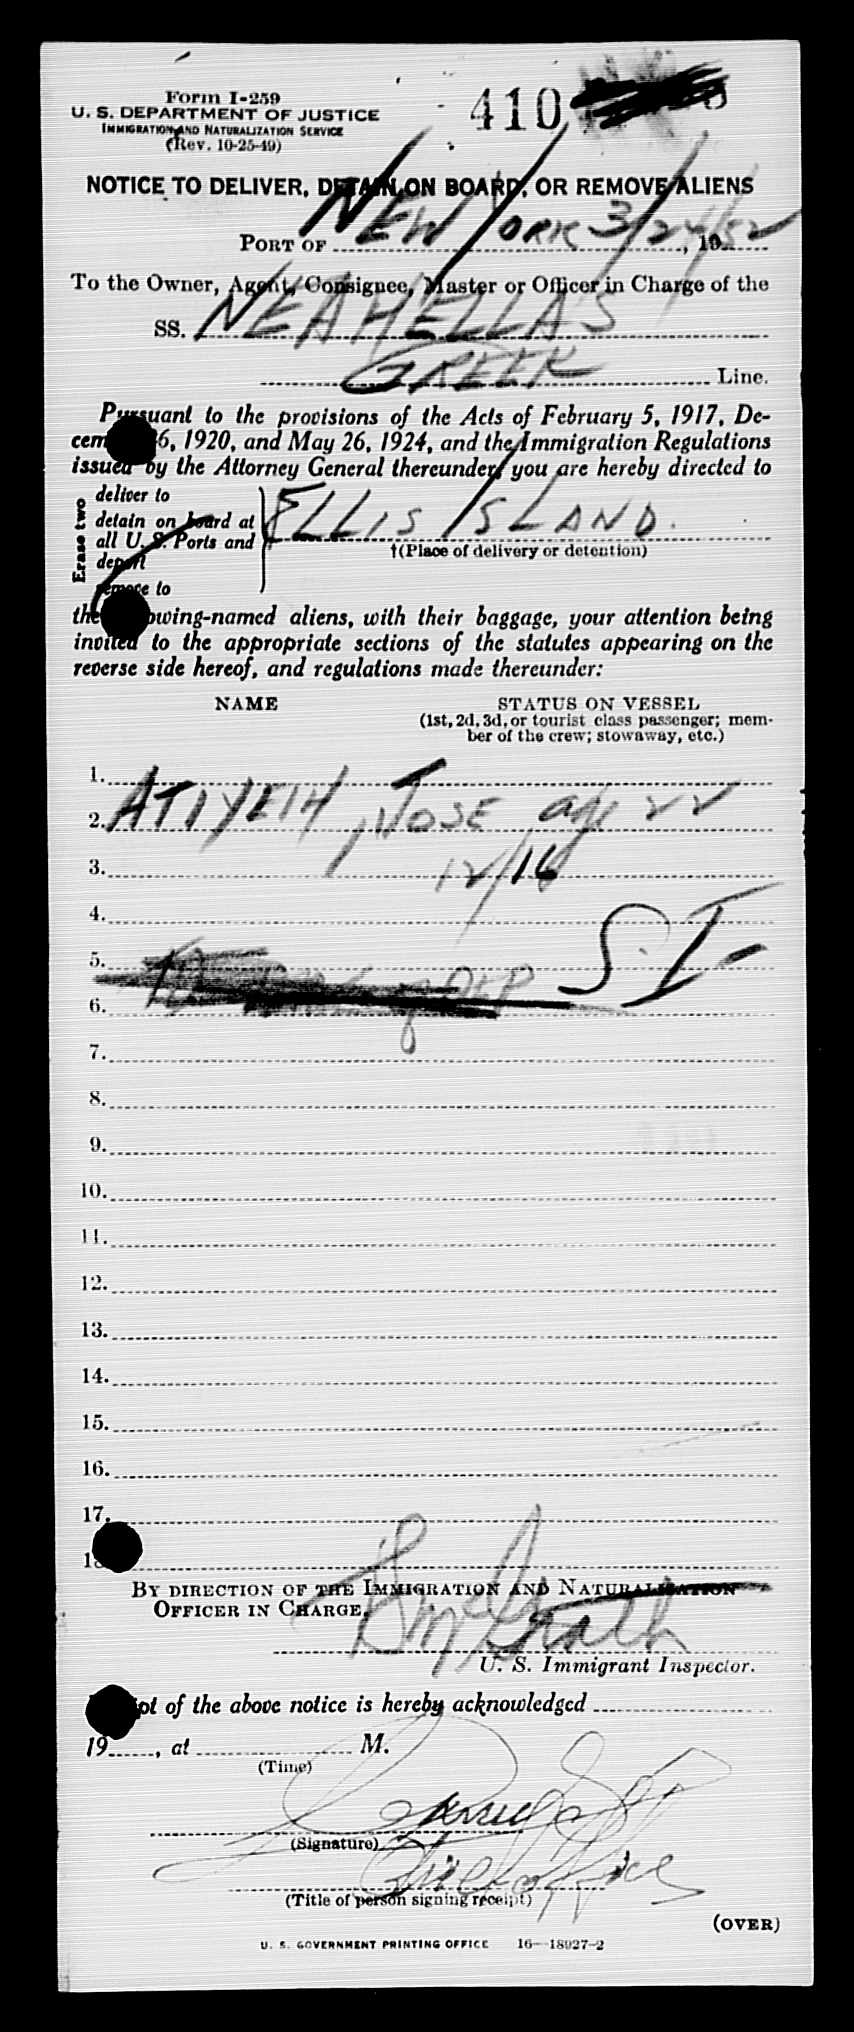 Form I-259
410
U. S. DEPARTMENT OF JUSTICE
IMMIGRATION AND NATURALIZATION SERVICE
(Rev. 10-25-49)
NOTICE TO DELIVER, DETAIN ON BOARD, OR REMOVE ALIENS
PORT OF NEW YORK 3/24/52, 19
To the Owner, Agent, Consignee, Master or Officer in Charge of the
SS. NEA HELLAS
GREEK Line.
Pursuant to the provisions of the Acts of February 5, 1917, De-
cem 6, 1920, and May 26, 1924, and the Immigration Regulations
issued by the Attorney General thereunder, you are hereby directed to
Erase two
deliver to
detain on board at
all U. S. Ports and
deport
remove to
ELLIS ISLAND.
†(Place of delivery or detention)
the owing-named aliens, with their baggage, your attention being
invited to the appropriate sections of the statutes appearing on the
reverse side hereof, and regulations made thereunder:
NAME STATUS ON VESSEL
(1st, 2d, 3d, or tourist class passenger; mem-
ber of the crew; stowaway, etc.)
1.
2. ATIYEH, JOSE age 22
3. 12/16
4.
5. S.I-
6.
7.
8.
9.
10.
11.
12.
13.
14.
15.
16.
17.
18
BY DIRECTION OF THE IMMIGRATION AND NATURALIZATION
OFFICER IN CHARGE,
U. S. Immigrant Inspector.
pt of the above notice is hereby acknowledged
19 , at M.
(Time)
(Signature)
(Title of person signing receipt)
(OVER)
U. S. GOVERNMENT PRINTING OFFICE 16—18927-2